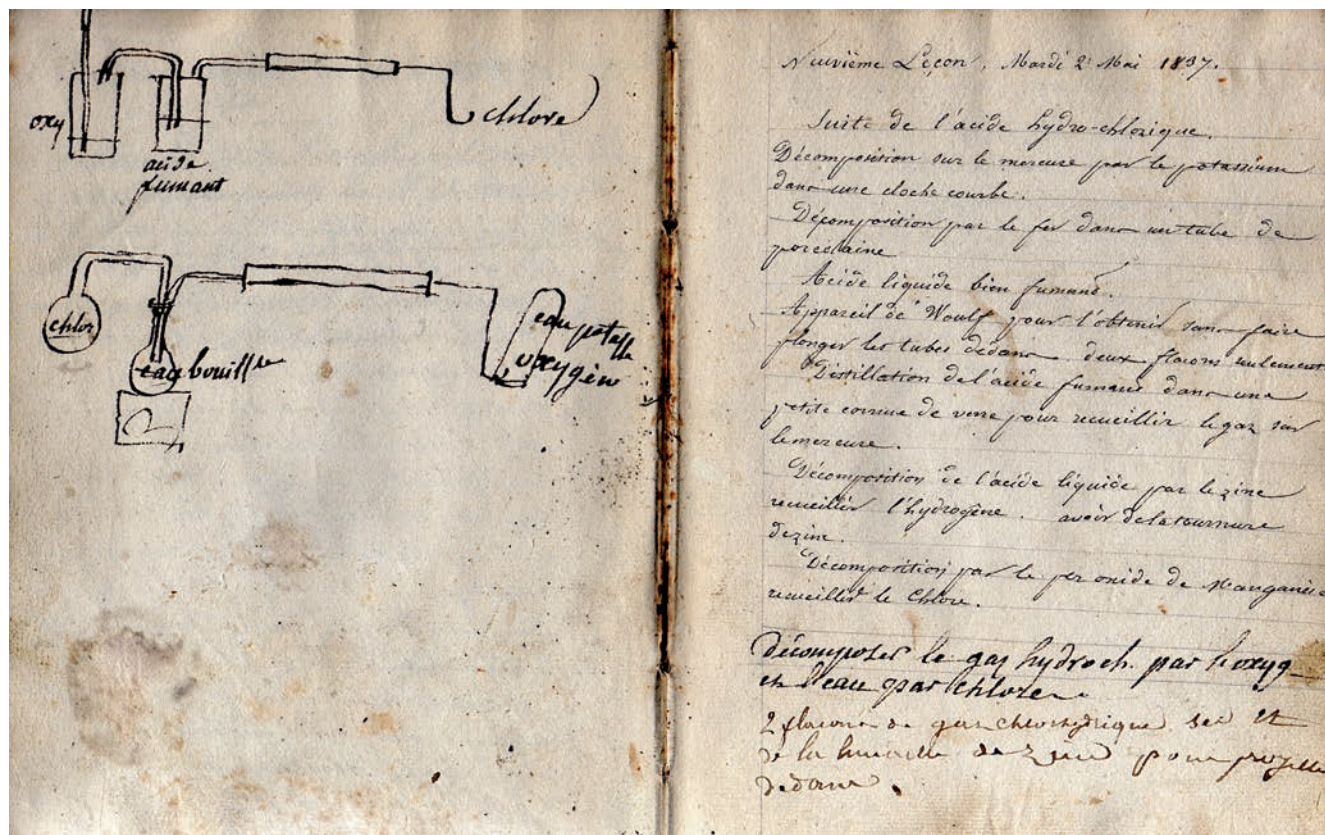 oxy
acide
fumant
chlore
chlor
eau bouille
eau potasse
oxygèn
Neuvième Leçon, Mardi 2 Mai 1837.
Suite de l'acide hydro-chlorique.
Décomposition sur le mercure par le potassium
dans une cloche courbe.
Décomposition par le fer dans un tube de
porcelaine
Acide liquide bien fumant.
Appareil de Woulf pour l'obtenir sans faire
plonger les tubes dedans deux flacons seulement
Distillation de l'acide fumant dans une
petite cornue de verre pour recueillir le gaz sur
le mercure.
Décomposition de l'acide liquide par le zinc
recueillir l'hydrogène. avoir de la tournure
de zinc.
Décomposition par le per oxide de Manganèse
recueillir le Chlore.
décomposer le gaz hydroch. par l'oxyg
et l'eau par chlore.
2 flacons de gaz chlorhydrique sec et
de la limaille de zinc pour projeter
dedans.